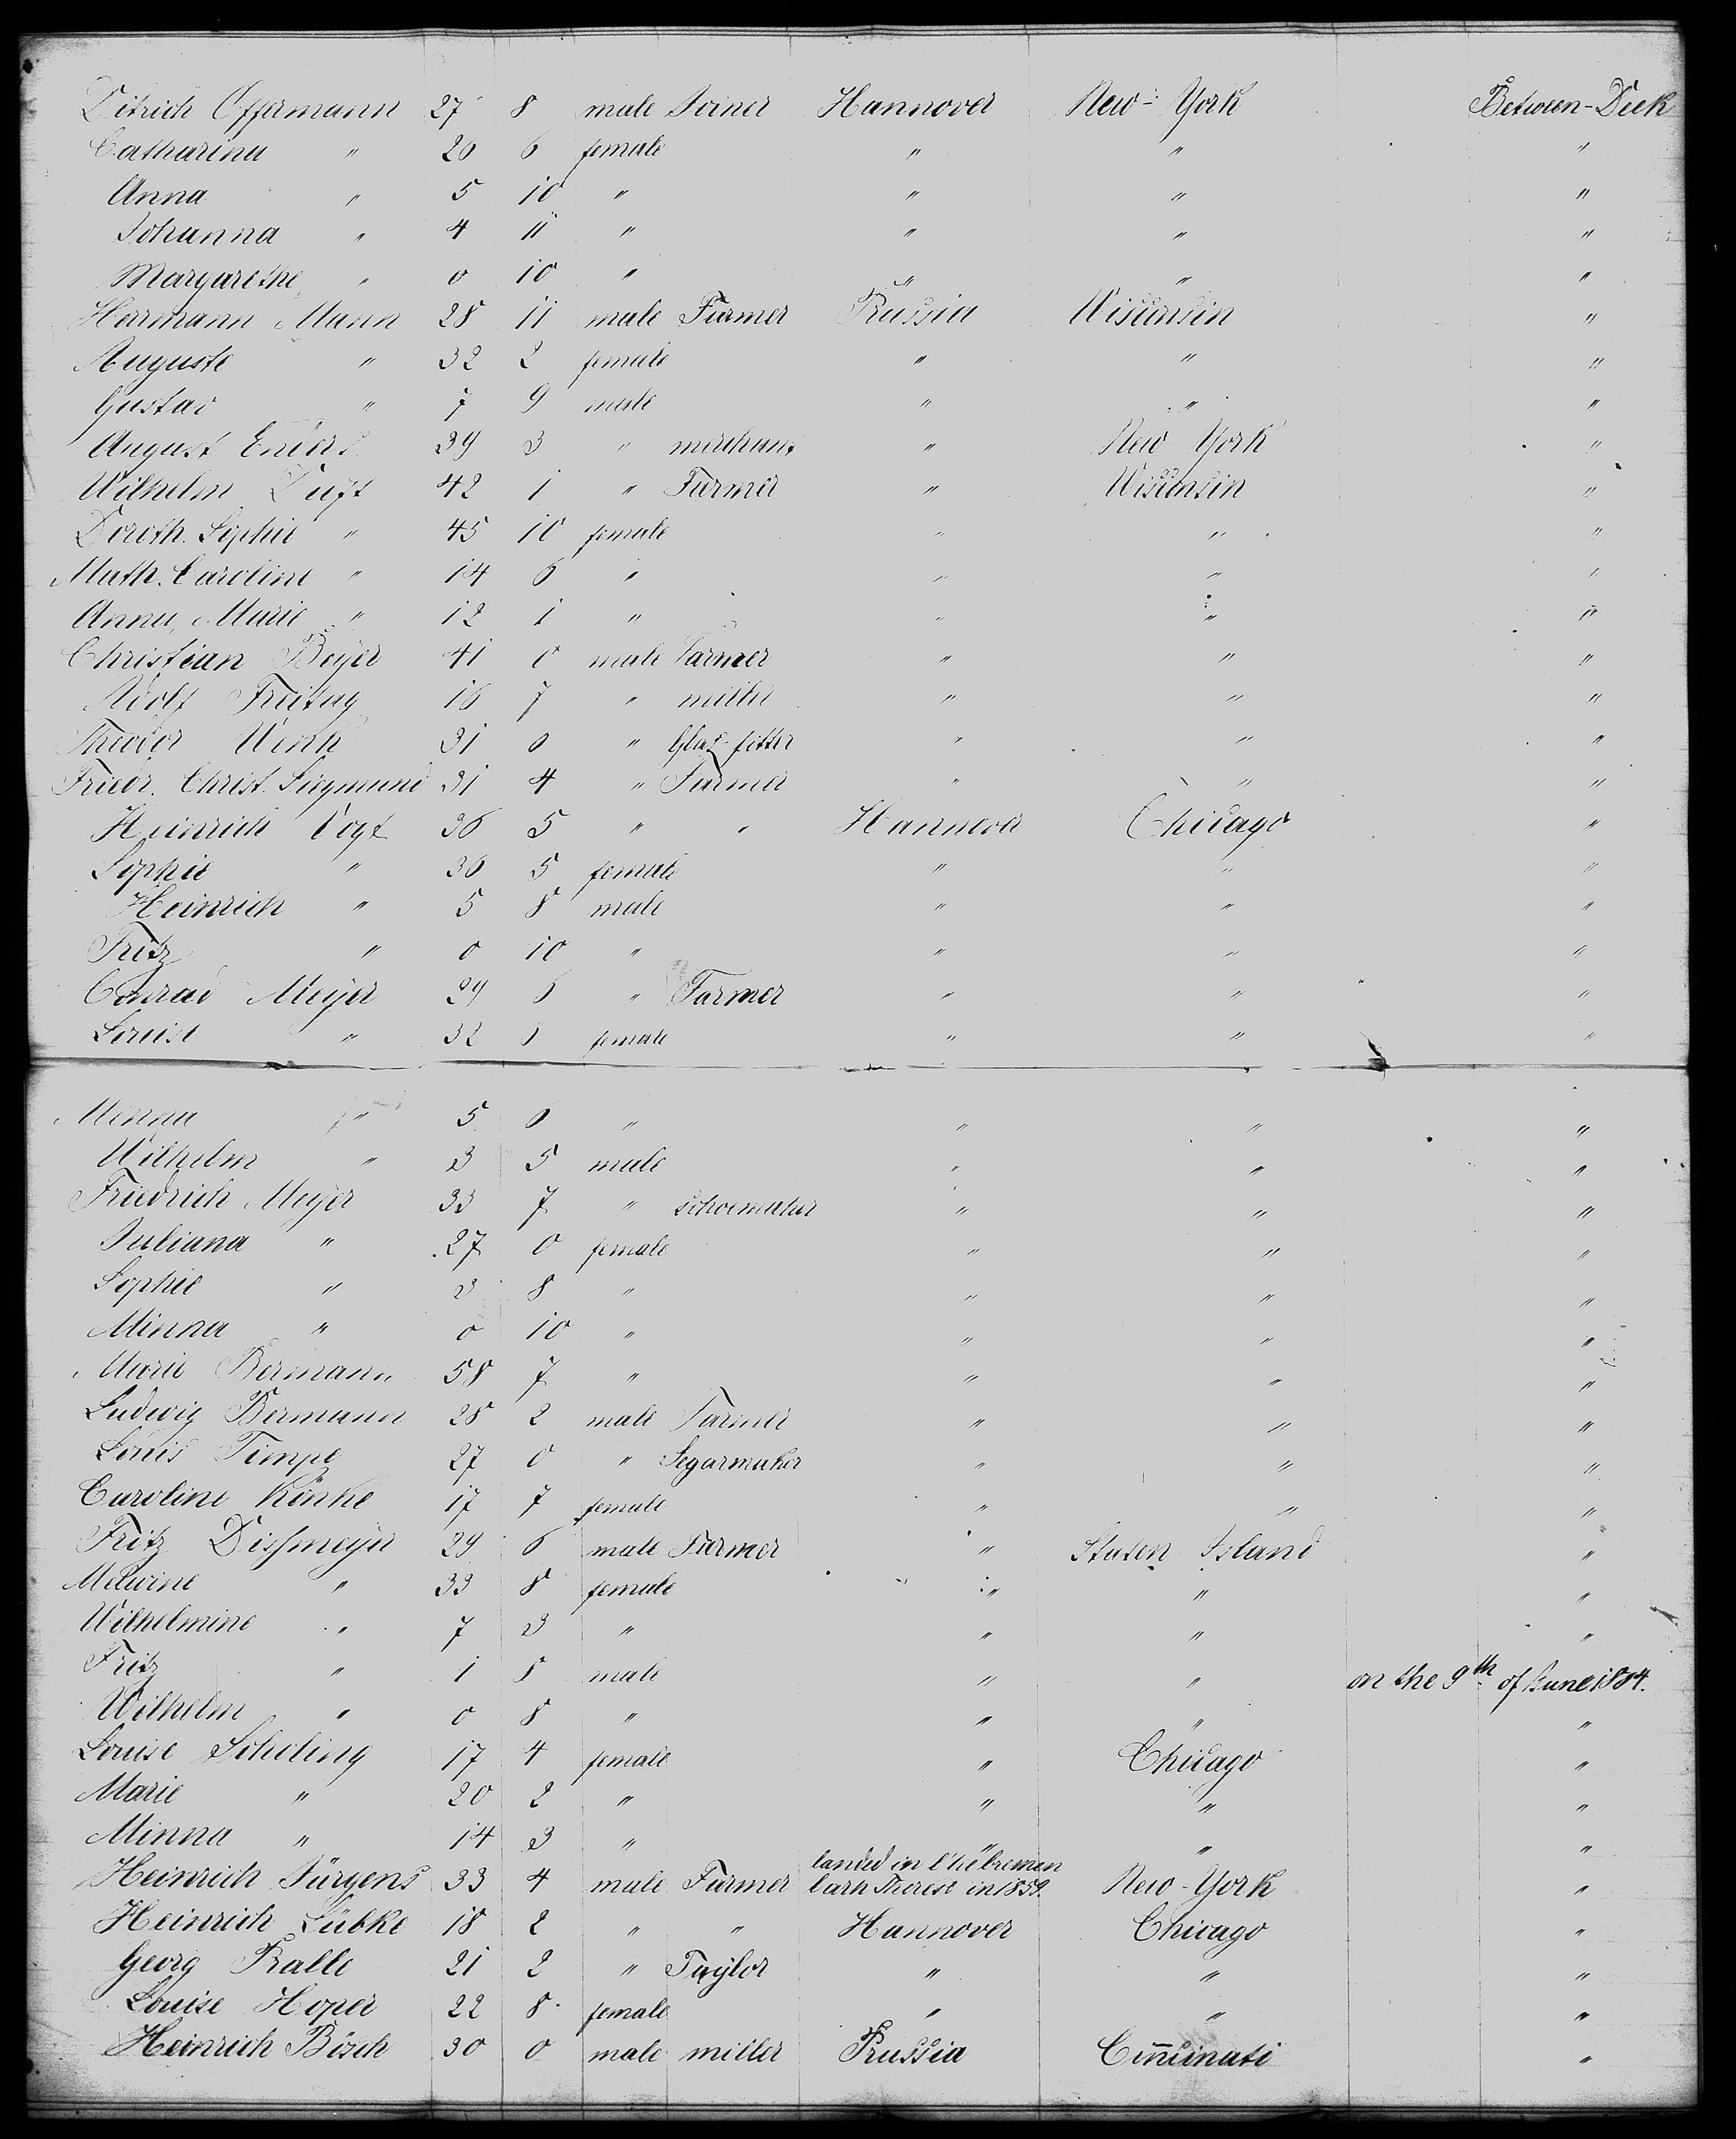 Ditrich Offermann 27 8 male Joiner Hannover New-York Between-Deck
Catharina " 26 6 female " " "
Anna " 5 10 " " " "
Johanna " 4 11 " " " "
Margarethe " 0 10 " " " "
Herrmann Mann 28 11 male Farmer Prussia Wisconsin "
Auguste " 32 2 female " " "
Gustav " 7 9 male " " "
August Enders 39 3 " merchant " New York "
Wilhelm Duft 42 1 " Farmer " Wisconsin "
Doroth. Sophie " 45 10 female " " "
Math. Caroline " 14 6 " " " "
Anna, Marie " 12 1 " " " "
Christian Beyer 41 0 male Farmer " " "
Adolf Freitag 16 7 " miller " " "
Theodor Wenk 31 6 " fitter " " "
Friedr. Christ. Siegmund 31 4 " Farmer " " "
Heinrich Vogt 36 5 " " Hannover Chicago "
Sophie " 36 5 female " " "
Heinrich " 5 8 male " " "
Fritz " 0 10 " " " "
Conrad Meyer 29 6 " Farmer " " "
Louise " 32 female " " "
Menna " 5 6 " " " "
Wilhelm " 3 5 male " " "
Friedrich Meyer 33 7 " schoemaker " " "
Juliana " 27 0 female " " "
Sophie " 3 8 " " " "
Minna " 0 10 " " " "
Marie Bermann 58 7 " " " "
Ludwig Bermann 28 2 male Farmer " " "
Louis Timpe 27 0 " Segarmaker " " "
Caroline Könke 17 7 female " " "
Fritz Dissmeyer 29 6 male Farmer " Staten Island "
33 8 female " " "
Wilhelmine " 7 3 " " " "
Fritz " 1 8 male " " on the 9th of June 1864.
Wilhelm " 0 8 " " " "
Louise Scholing 17 4 female " Chicago "
Marie " 20 2 " " " "
Minna " 14 3 " " " "
landed in bremen
Heinrich Jürgens 33 4 male Farmer bark Therese in 1859. New-York "
Heinrich Lübke 18 2 " " Hannover Chicago "
Georg Ralle 21 2 " Taylor " " "
Louise Hoper 22 8 female " " "
Heinrich Bösch 30 0 male miller Prussia Cincinati "